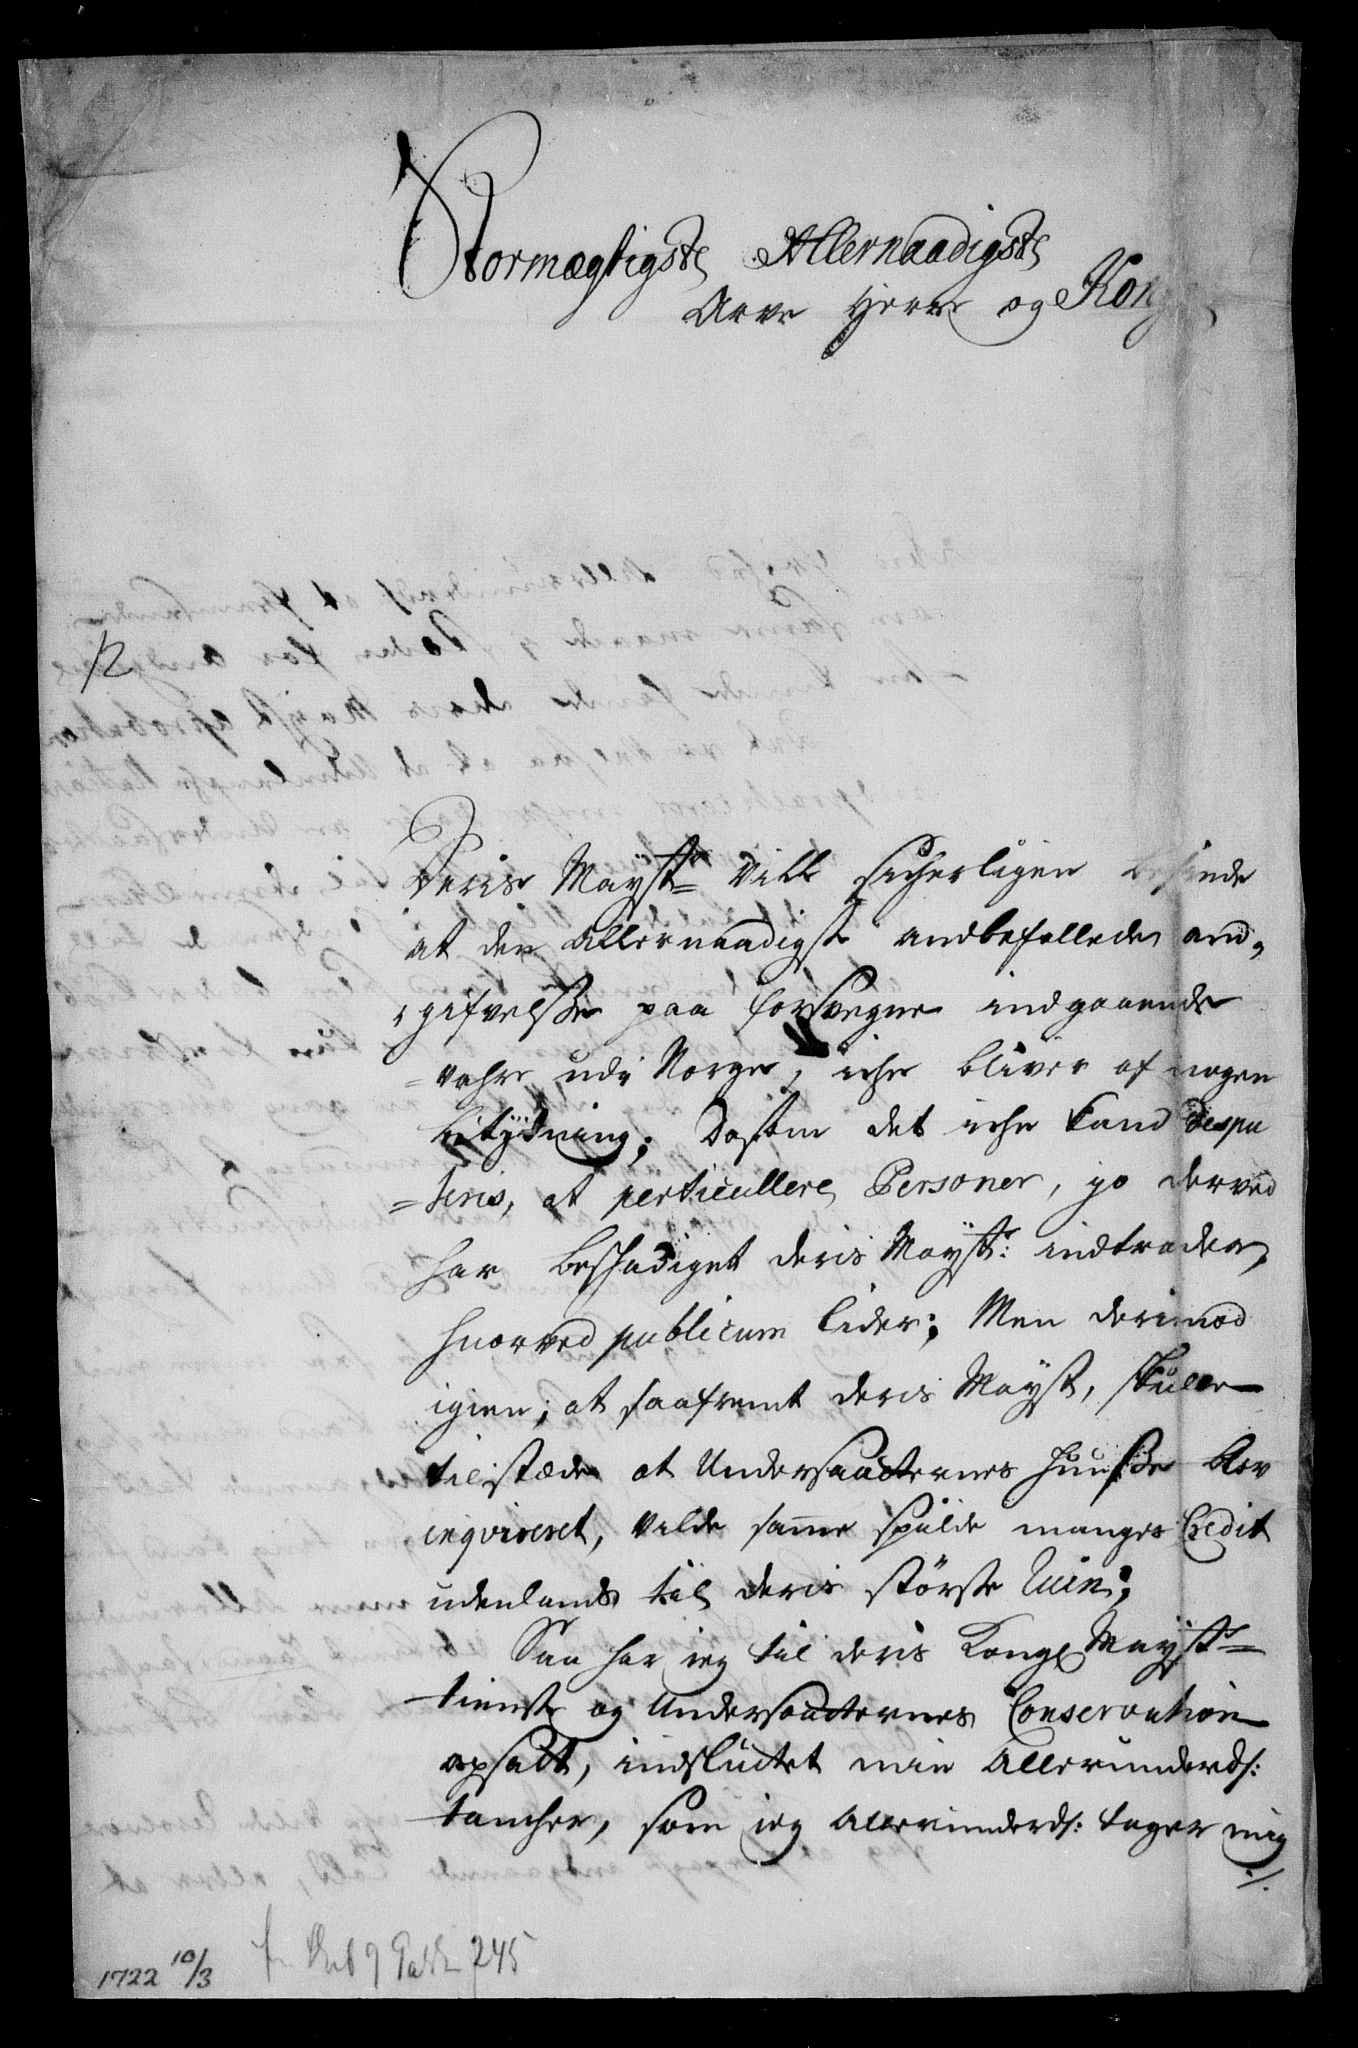 Stormægtigste Allernaadigste
Arve Herre og Kong
12
Deris Mayst= Ville sicherligen befinde
at den allernaadigste andbefallede an„
„gifvelsse paa forsvegne indgaaende
=vahre udi Norge, iche bliver af nogen
betydning; Dessten det iche kand dispu
=teris, at perticullere Personer, jo derved
har beskadiget deris Mayst: indtrader,
huorved publicum lider; Men derimod
igien, at saafremt deris Mayst, skulle
tilstæde at Undersaatternes Huusse blev
inqvireret, Vilde samme spilde manges Credit
udenlands til deris største Ruin;
Saa har jeg til deris Kongl Mayst=
tieniste og Undersaatternes Conservation
opsatt, indsluttet min Allerunderds:
tancher, som jeg allerunderds: tager mig
./.
1722 10/3
245